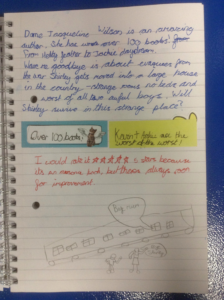 Dame Jacqueline Wilson is an amazing
author. She has written over 100 books! from
from daddy father to Jackie daydream.
Wave me goodbye is about evacuees from
the war Shirley gets moved into a large house
in the country. strange rooms no locks and
worst of all two awful boys. Will
Shirley survive in this strange place?
Over 100 books!
Kevin + John are the
worst of the worst!!
I would rate it ★★★★★ 5 stars because
its an amazing book but theres always room
for improvement
Big